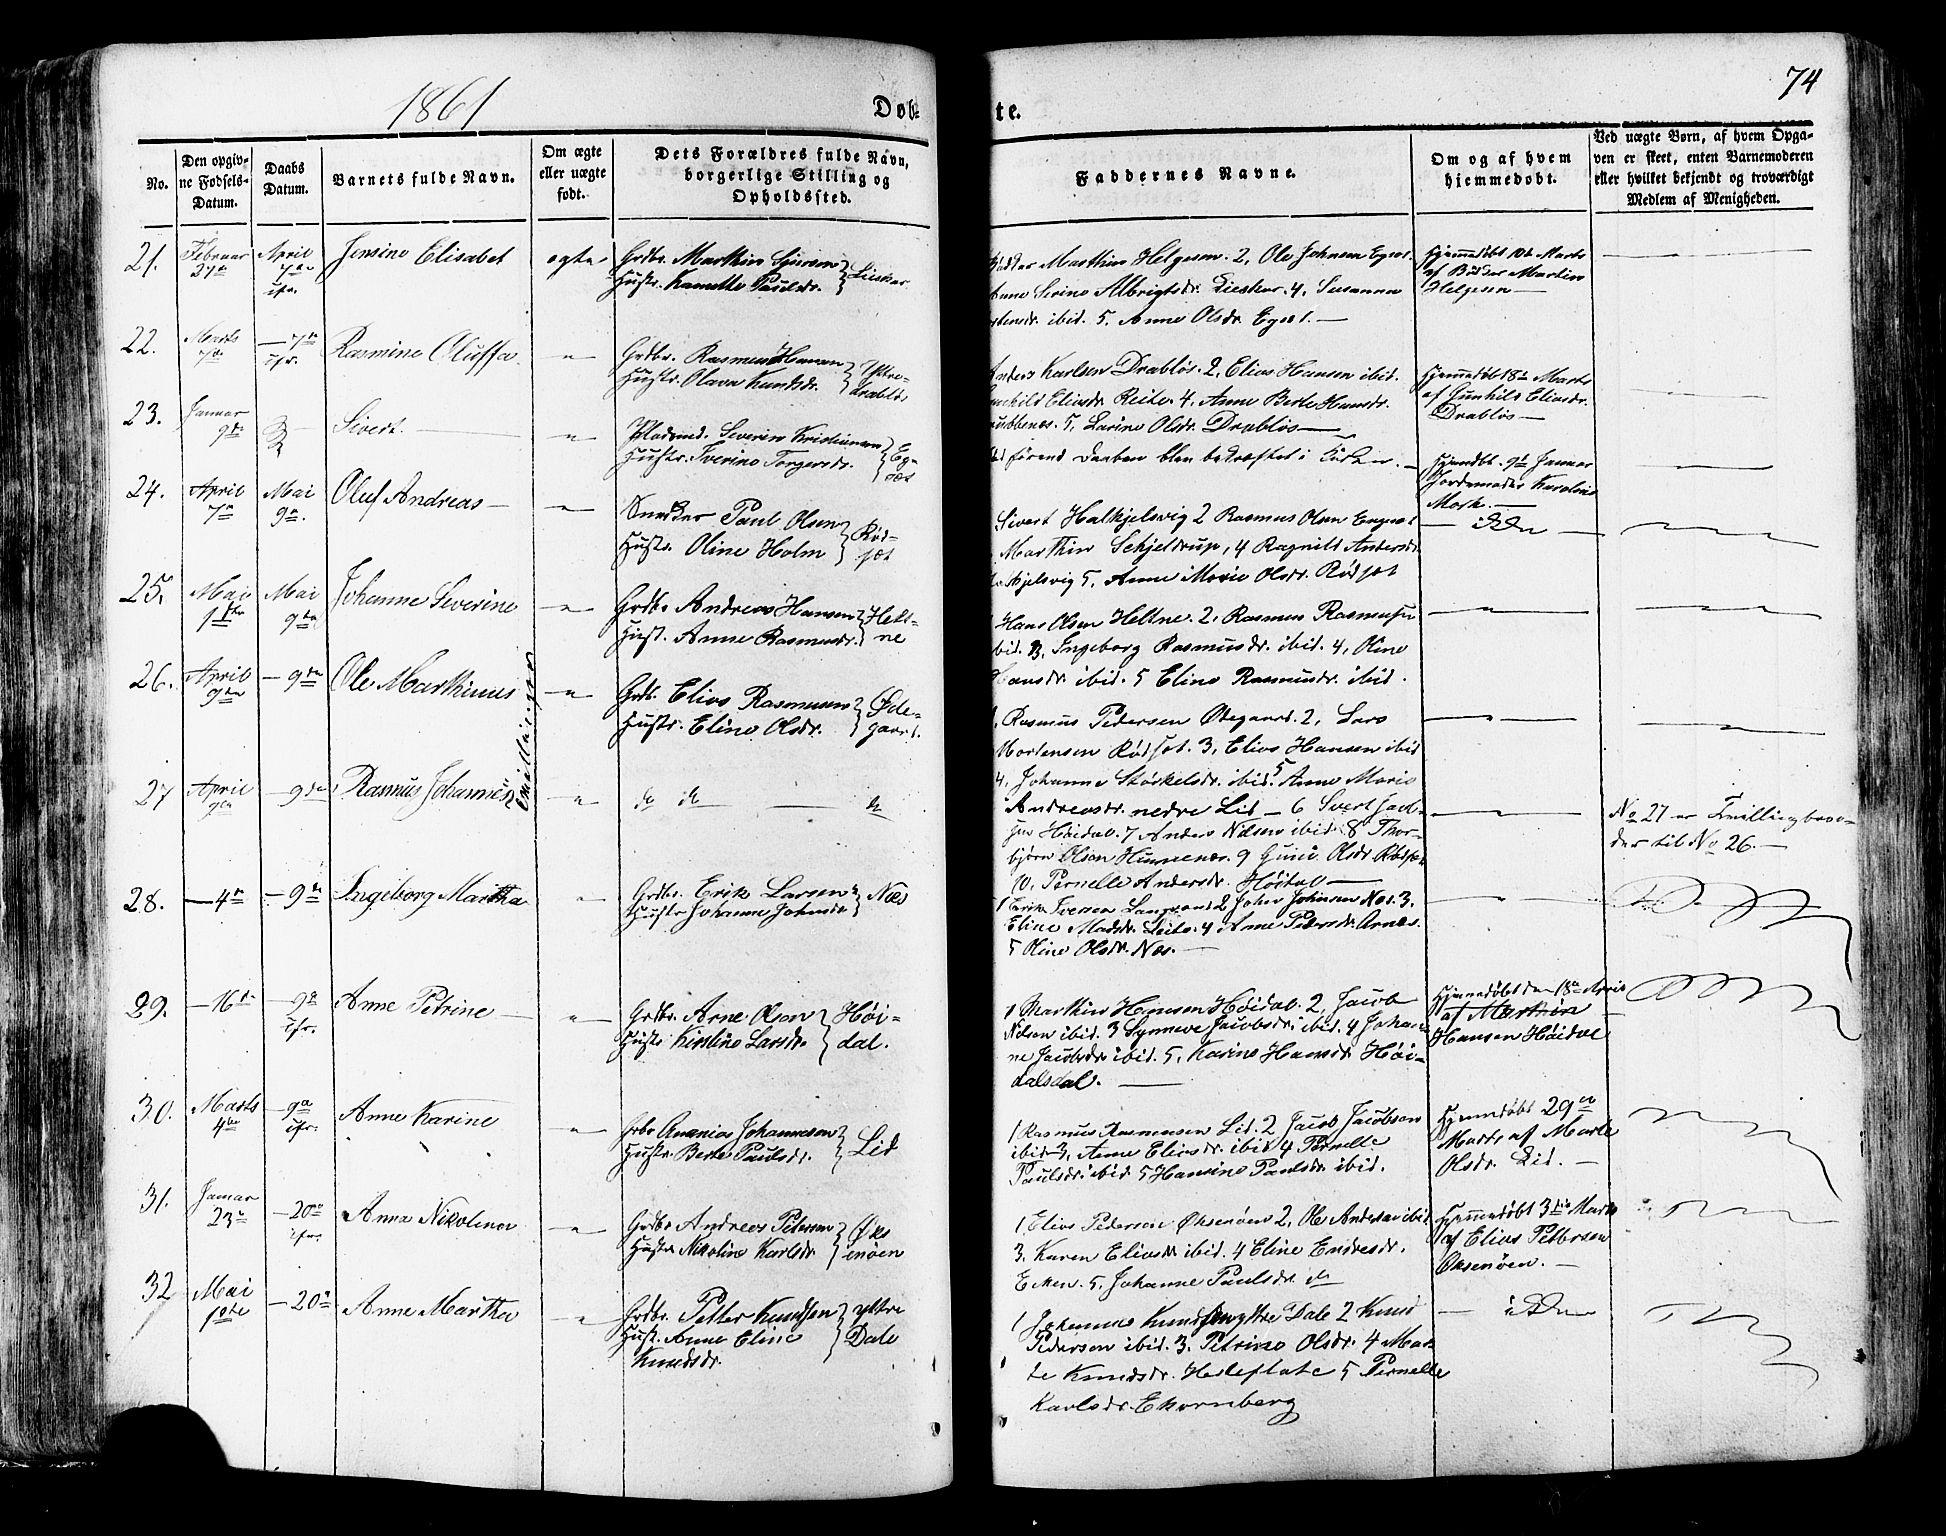 1861
Døb-
te.
74
No.
Den opgiv-
ne Fødsels-
Datum.
Daabs
Datum.
Barnets fulde Navn.
Om ægte
eller uægte
født.
Dets Forældres fulde Navn,
borgerlige Stilling og
Opholdssted.
Faddernes Navne.
Om og af hvem
hjemmedøbt.
Ved uægte Børn, af hvem Opga-
ven er skeet, enten Barnemoderen
eller hvilket bekjendt og troværdigt
Medlem af Menigheden.
21. Februar April Jensine Elisabet ægte Grdbr. Marthin
27de 7de Hustr. Paulsdr.
Marthin Helgesen. 2, Ole Johnsen
Anne Serine Albrigtsdr. 4, Susanna
ibid. 5, Anne Olsdr.
Hjemmedøbt 10de Marts
af Marthin
Helgesen
22. Marts 7de Rasmine Oluffa Grdbr. Rasmus Hansen Yttre-
7de Hustr. Olava Knudsdr. Drabløs
Anders Karlsen Drabløs. 2, Elias Hansen ibid.
Eliasdr. Reite. 4, Anne Berte Hansdr.
5, Larine Olsdr. Drabløs
Hjemmedøbt 18de Marts
af Gunhild Eliasdr.
Drabløs
23. Januar Sivert. Pladsmd. Severin Kristiansen
9de Hustr. Torgersdr.
førend Daaben blev bekræftet i Kirken.
Hjemdbt. 9de Januar
Jordemoder Karoline
Mork.
24. April Mai Oluf Andreas Snedker Paul Olsen Rød-
7de 9de Hustr. Oline Holm sæt
Sivert Halkjelsvig 2 Rasmus Olsen
Marthin Schjeldrup, 4 Ragnild Andersdr.
5, Anne Marie Olsdr. Rødsæt
ikke
25. Mai Mai Johanne Severine Grdbr. Andreas Hansen Helt-
1ste 9de Hust. Anne Rasmusdr. ne
Hans Olsen Heltne. 2, Rasmus Rasmusen
ibid. 3, Ingeborg Rasmusdr. ibid. 4, Oline
Hansdr ibid. 5 Eline Rasmusdr. ibid.
26. April 9de Ole Marthinus Grdb. Elias Rasmusen Øde-
9de Hustr. Eline Olsdr. gaard.
Tvillinger
Rasmus Pedersen Ødegaard. 2, Lars
Mortensen Rødsæt. 3, Elias Hansen ibid
4, Johanne Størkelsdr. ibid. 5 Anne Marie
27 April 9de Rasmus Johannes do do do
9de
Andreasdr. nedre Lid 6 Sivert
Høidal. 7 Anders ibid. 8 Thor-
bjørn Olsen 9 Olsdr. Rødsæt
10, Pernelle Andersdr. Høidal
No 27 er Tvillingbro-
der til No 26.
28. 4de 9de Ingeborg Martha Grdbr. Erik Larsen Næs
Hustr Johanne Johnsdr
1 Erik Iversen 2 John Johnsen Næs. 3.
Eline Madsdr. 4 Anne Pedersdr. Aarnes.
5 Oline Olsdr. Næs.
29. 16de 9de Anne Petrine Grdbr. Arne Olsen Høi-
Hustr Kirstine Larsdr. dal.
1 Marthin Hansen Høidal. 2, Jacob
Nilsen ibid. 3 Synneve Jacobsdr. ibid. 4 Johan-
ne Jacobsdr ibid. 5, Karine Hansdr Høi-
dalsdal.
Hjemmedøbt den 18de April
af Marthin
Hansen Høidal
30. Marts 9de Anne Karine Grdbr Ananias Johannesen Lid
4de Hustr. Berte Paulsdr.
1 Rasmus Rasmusen Lid. 2 Jacob Jacobsen
ibid 3, Anne Eliasdr. ibid 4 Pernelle
Paulsdr. ibid 5 Hansine Paulsdr. ibid.
Hjemmdøbt 29de
Marts af Marte
Olsdr. Lid.
31. Januar 20de Anna Nikolina Grdbr Andreas Petersen Øks
23de Hustr. Nikoline Karlsdr enøen
1, Elias Pedersen Øksenøen 2, Ole Andersen ibid
3. Karen Eliasdr ibid. 4 Eline Endresdr.
5. Johanne Paulsdr. do
Hjemmedøbt 31te Marts
af Elias Pettersen
Øksenøen.
32 Mai 20de Anne Martha Grdbr. Petter Knudsen yttre
1ste Hust. Anne Eline Dale
Knudsdr.
1 Johannes Knudsen yttre Dale 2 Knud
Pedersen ibid. 3. Petrine Olsdr. 4 Mar-
te Knudsdr. 5 Pernelle
Karlsdr. Ekornberg
ikke